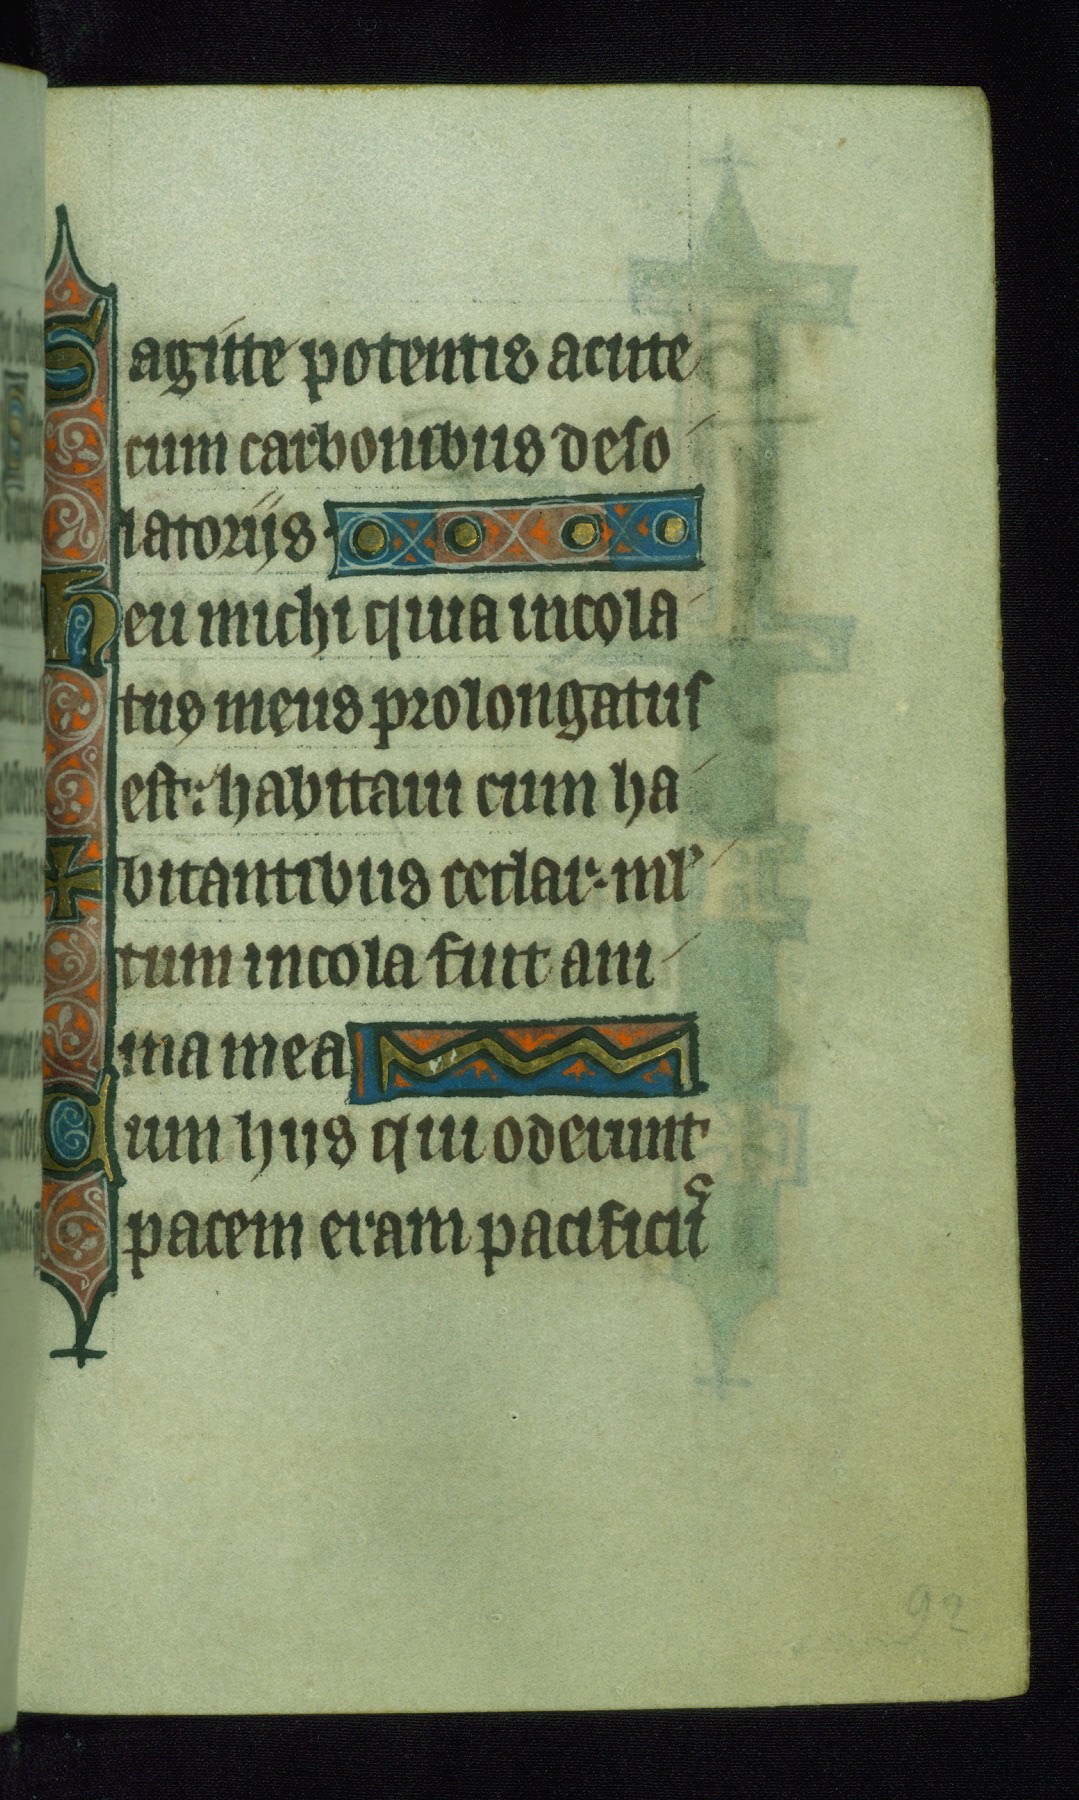 Sagitte potentis acute
cum carbonibus deso
latoriis
heu michi quia incola
tus meus prolongatus
est: habitaui cum ha
bitantibus cedar. ml̄
tum incola fuit ani
ma mea
Cum hiis qui oderunt
pacem eram pacificus
92